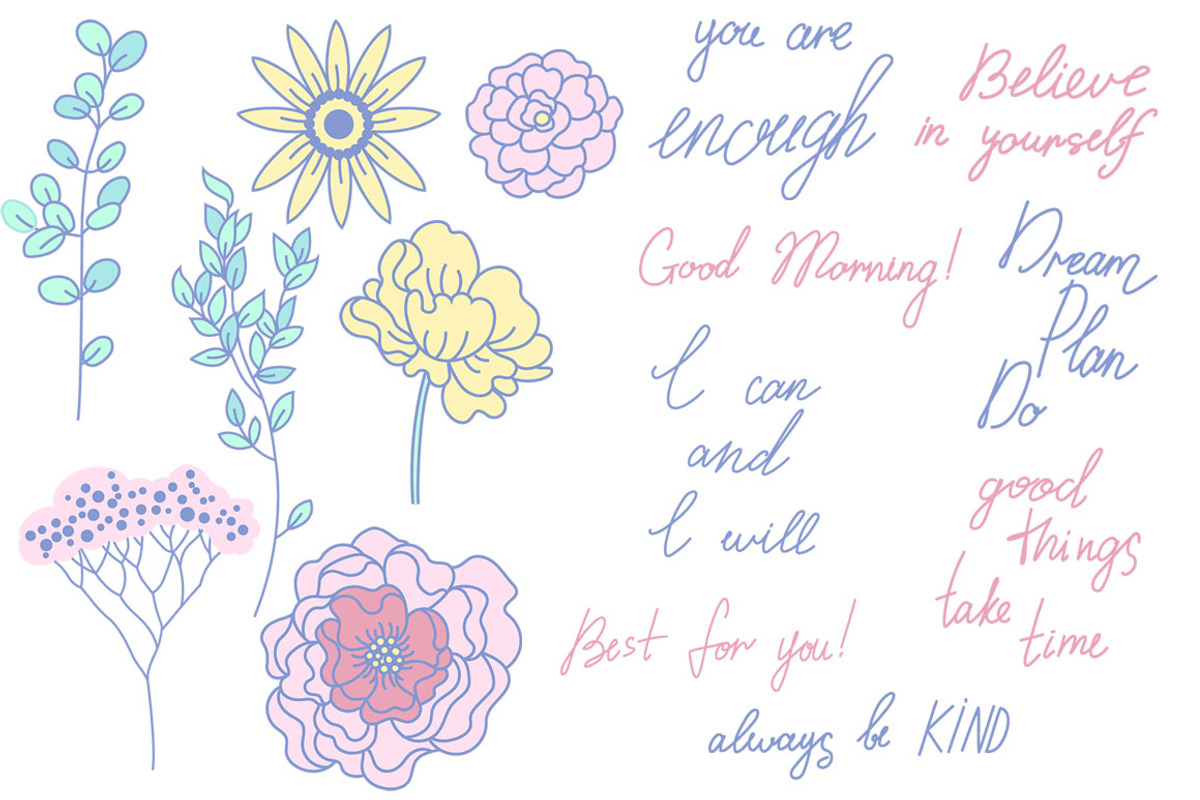 you are
enough
Believe
in yourself
Good Morning!
Dream
Plan
Do
I can
and
I will
good
things
take
time
Best for you!
always be KiND